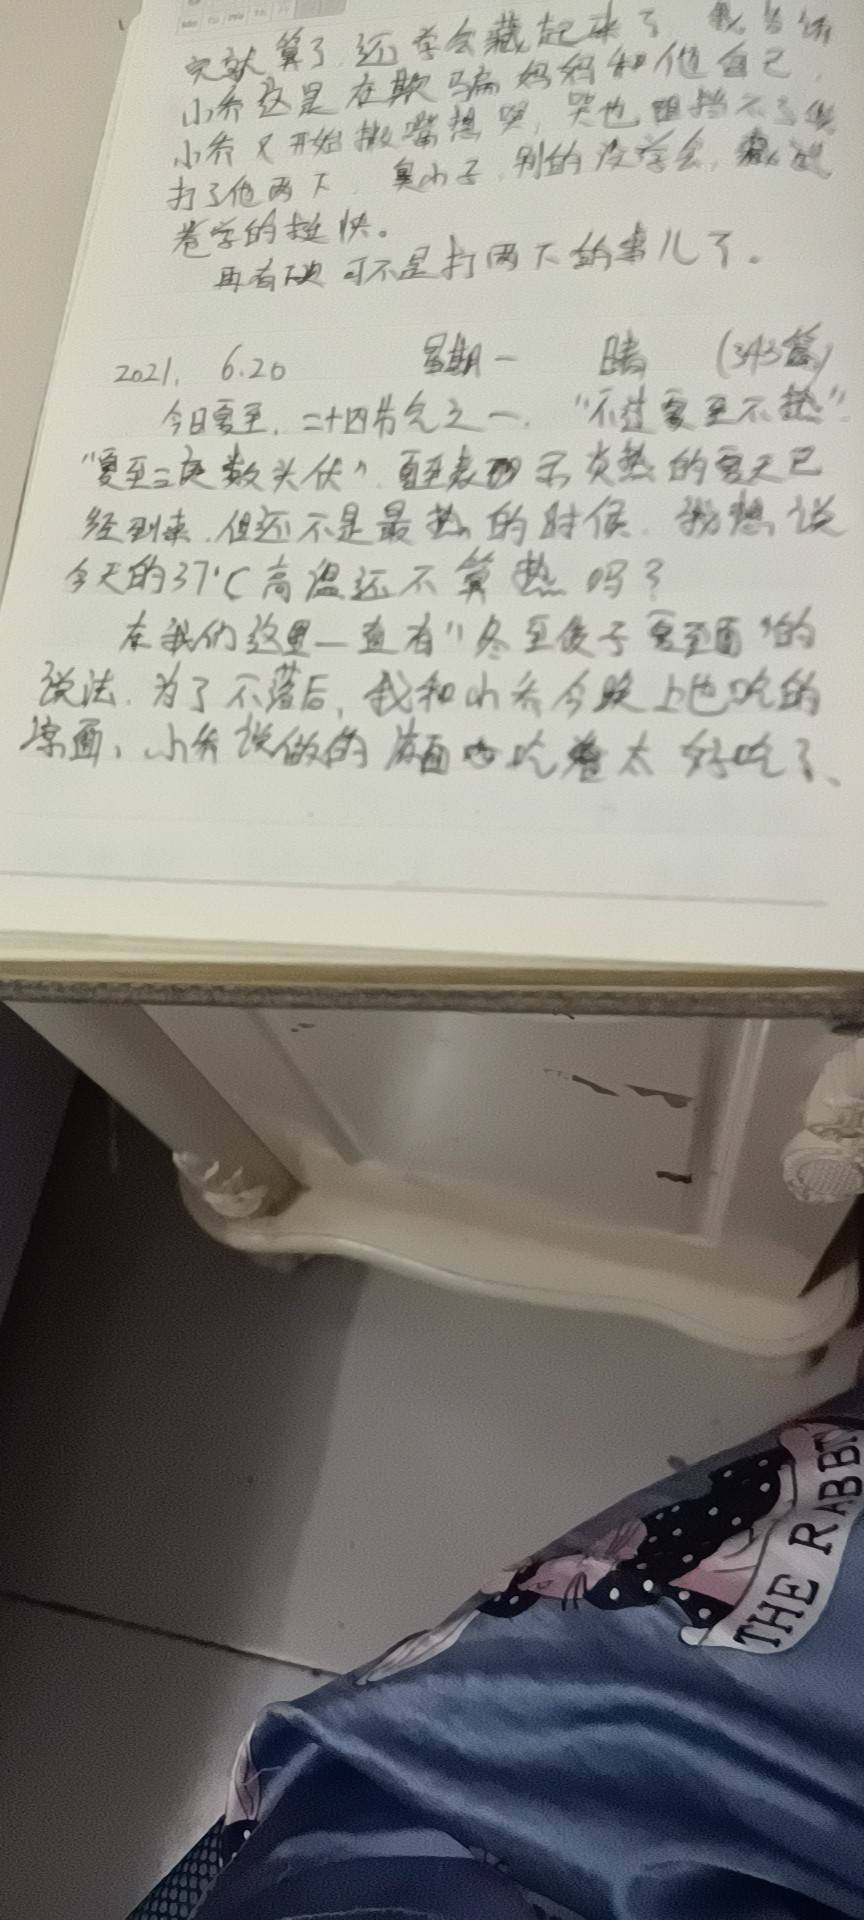 完就算了还学会藏起来了
小乔这是在欺骗妈妈和他自己,
小乔又开始撇嘴想哭,哭也阻挡不了
打了他两下.臭小子.别的没学会,
卷学的挺快。
再有下次可不是打两下的事儿了.
2021. 6.20 星期一 晴 (343篇)
今日夏至.二十四节气之一.“不过夏至不热”.
“夏至三庚数头伏”.夏至表明炎热的夏天已
经到来.但还不是最热的时候.我想说
今天的37℃高温还不算热吗?
在我们这里一直有“冬至饺子夏至面”的
说法.为了不落后,我和小乔今晚上也吃的
凉面、小乔说做的凉面吃着太好吃了、
THE RABB